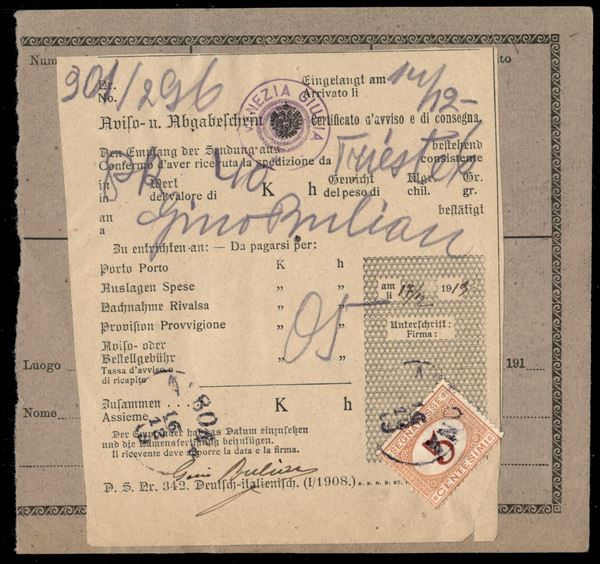 Num
Nr. 301/296 Eingelangt am 14/12
No. Arrivato li
VENEZIA GIULIA
Aviso- u. Abgabeschein Certificato d'avviso e di consegna.
Den Empfang der Sendung aus Triest bestehend
Confermo d'aver ricevuta la spedizione da consistente
in Wert K h Gewicht Klgr. Gr.
in del valore di del peso di chil. gr.
an Gino Bulian bestätigt
a
Zu entrichten an: — Da pagarsi per:
Porto Porto K h
Auslagen Spese " "
Nachnahme Rivalsa " "
Provision Provvigione " "
05
Aviso- oder
Bestellgebühr " "
Tassa d'avviso o
di ricapito
am 17/12 1919
li
Unterschrift:
Firma:
Zusammen K h
Assieme
Der Empfänger hat das Datum einzusetzen
und die Namensfertigung beizufügen.
Il ricevente deve apporre la data e la firma.
Gino Bulian
D. S. Nr. 342. Deutsch-italienisch. (I/1908).
SEGNATASSE
5
CENTESIMI 5
16
12
16
12
19
Luogo
191
Nome